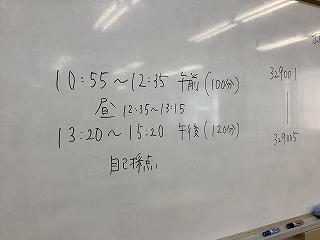 10:55〜12:35 午前(100分)
昼 12:35〜13:15
13:20〜15:20 午後(120分)
自己採点
329001
|
329005